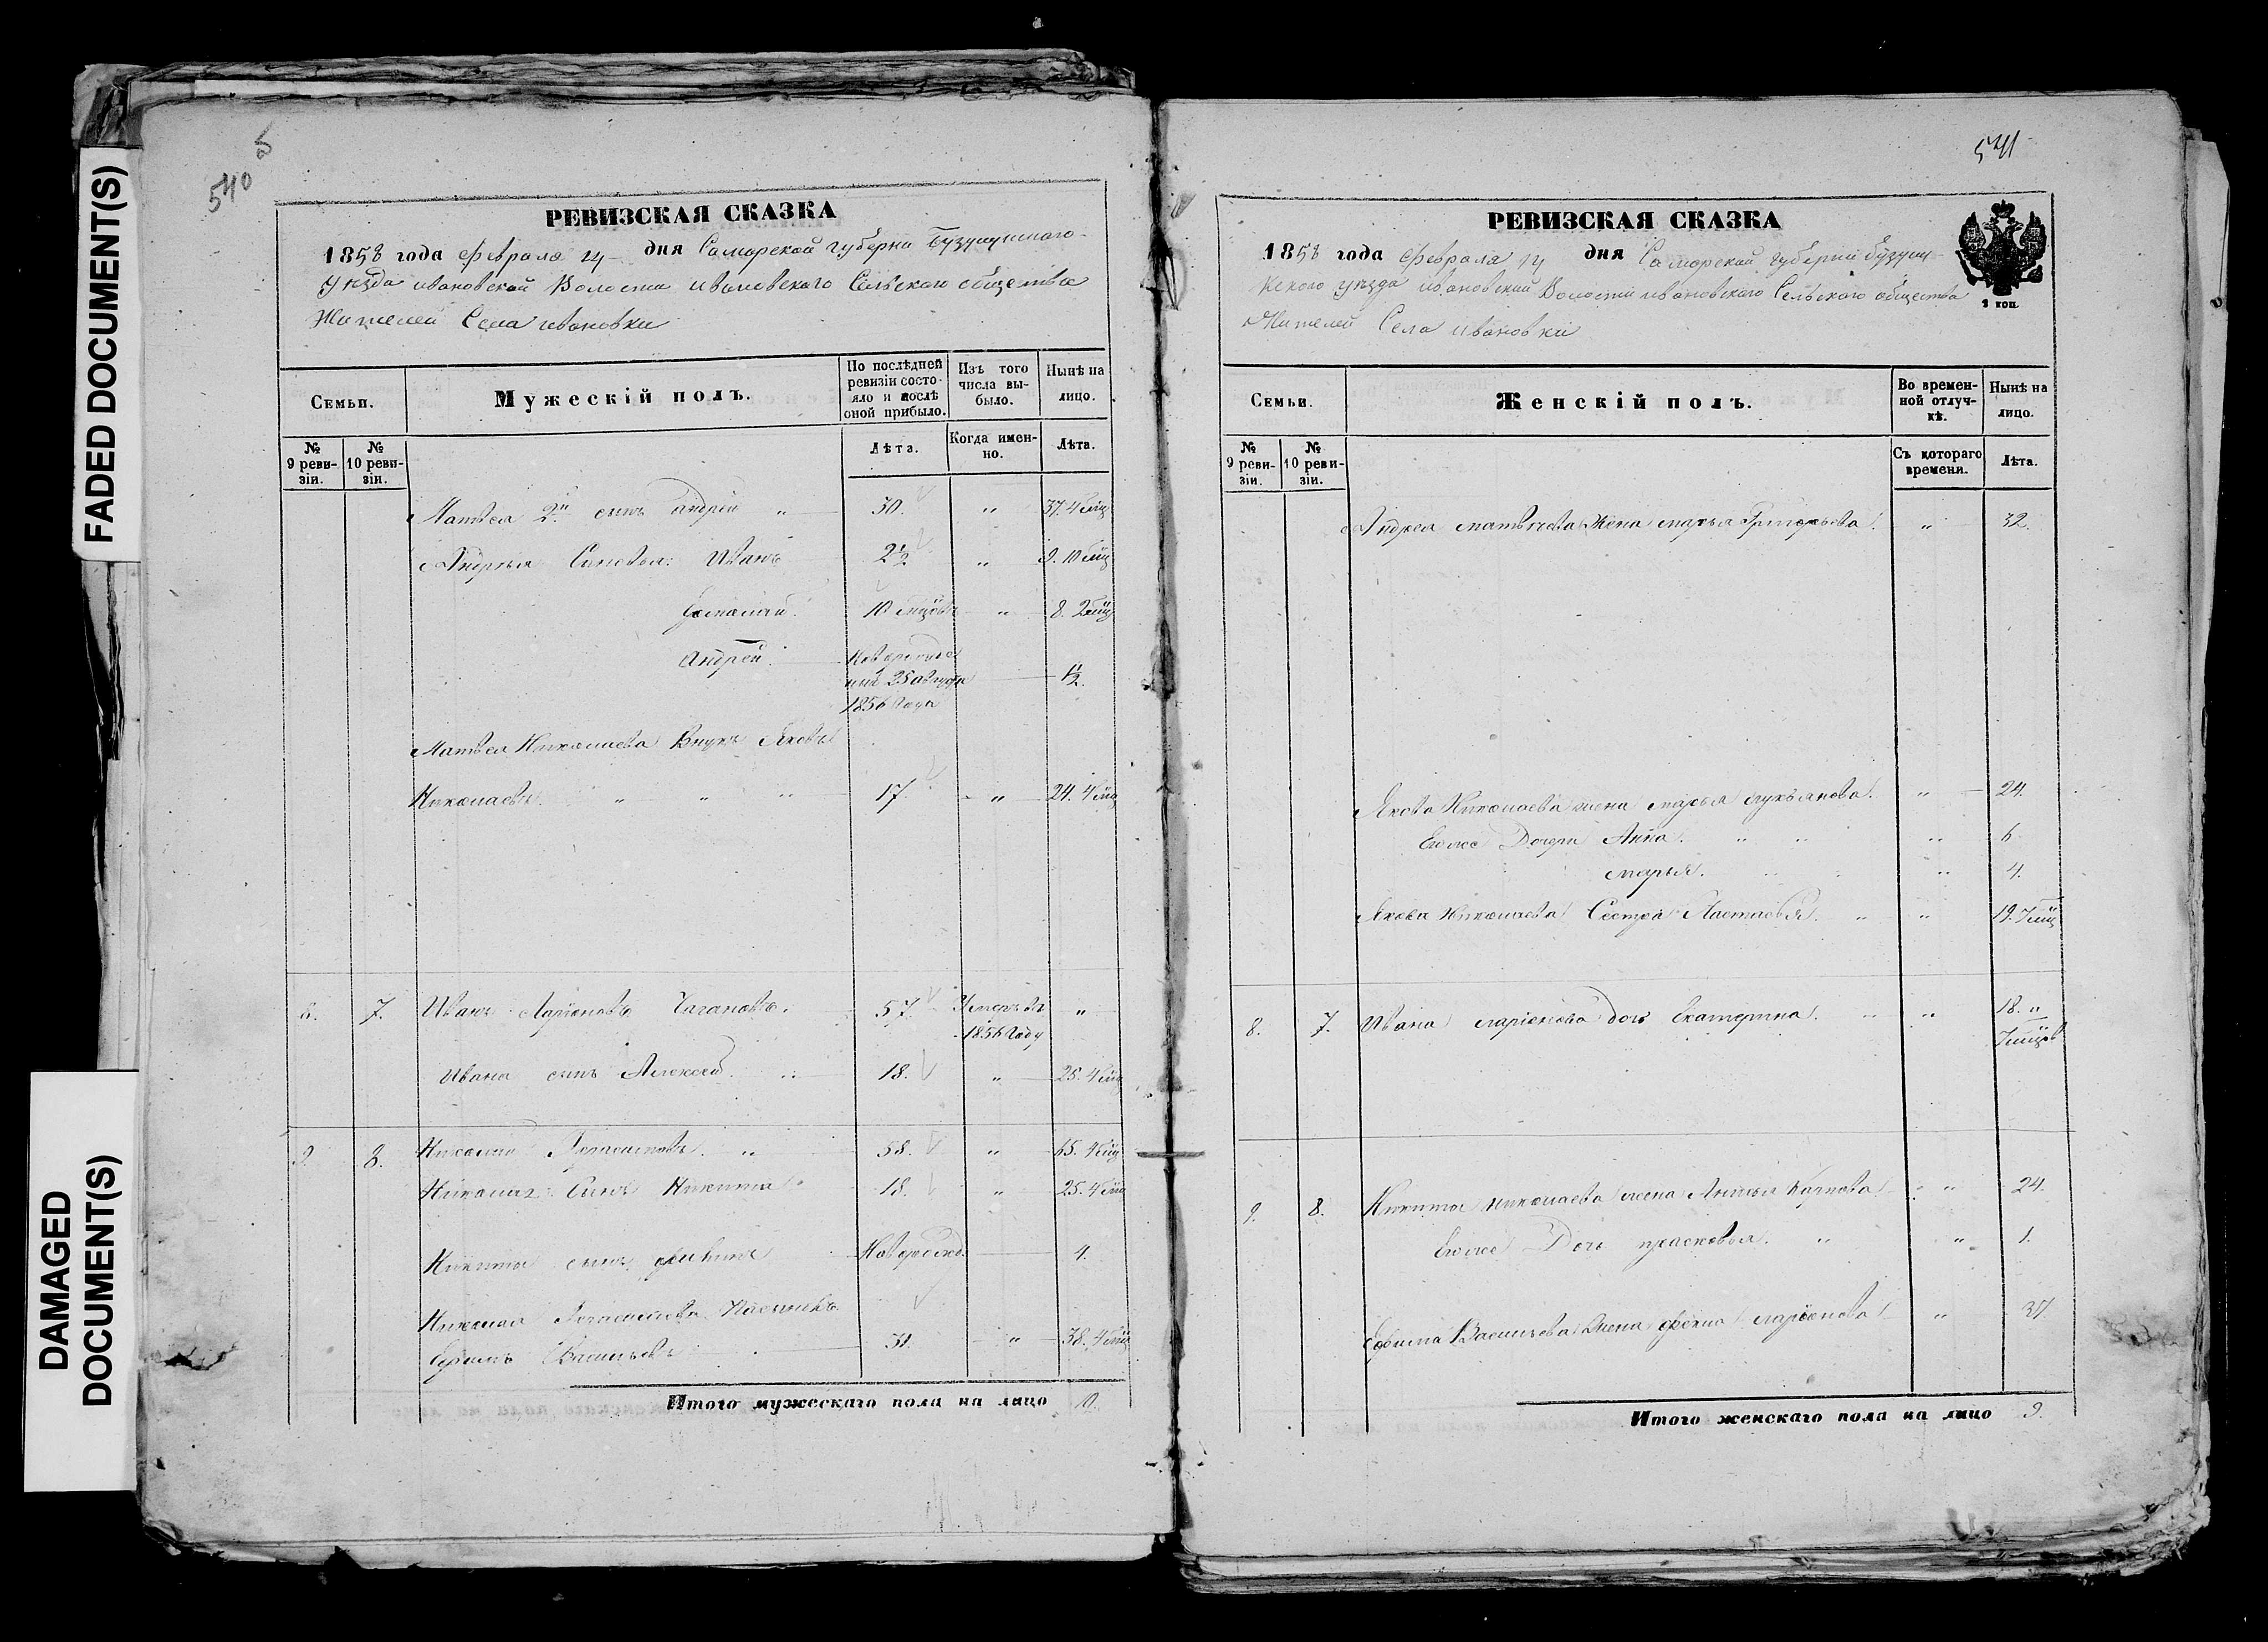 FADED DOCUMENT(S)
DAMAGED
DOCUMENT(S)
540
РЕВИЗСКАЯ СКАЗКА
1858 года февраля 14 дня Самарской губерни Бузулукского
уѣзда ивановской Волости ивановского Сельского общества
Жителей Села ивановки
Семьи.
Мужескій полъ.
По послѣдней ревизіи состояло и послѣ оной прибыло.
Изъ того числа выбыло.
Нынѣ на лицо.
№ 9 ревизіи.
№ 10 ревизіи.
Лѣта.
Когда именно.
Лѣта.
Матвея 2й сынъ андрей " 30. " 37. 4 мц
Андрея Сыновья: Иванъ 2½ " 9. 10 мц
10 мцовъ " 8. 2 мц
андрей. Новорожденный 25 августа 1856 года 1½.
Матвея Николаева Внукъ Яковъ
Николаевъ. " " " 17. " 24. 4 мц
7. Иванъ Ларионовъ 57. Умеръ въ 1856 Году "
Ивана сынъ Алексей. 18. " 25. 4 мц
9. 8. Николай Герасимовъ. " 58. " 65. 4 мц
Николая Сынъ Никита 18. " 25. 4 мц
Никиты сынъ Новорожд. 4.
Николая Герасимова
Ефимъ Васильевъ 31. " 38. 4 мц
Итого мужескаго пола на лицо 9.
541
РЕВИЗСКАЯ СКАЗКА
1858 года февраля 14 дня Самарской губернии Бузулу-
кского уѣзда ивановской Волости ивановского Сельского общества
Жителей Села ивановки
1 коп.
Семьи.
Женскій полъ.
Во временной отлучкѣ.
Нынѣ на лицо.
№ 9 ревизіи.
№ 10 ревизіи.
Съ котораго времени.
Лѣта.
Андрея матвѣева Жена марья Григорьева. " 32.
Якова Николаева жена марья лукьянова. " 24.
Его же Дочери Анна. " " " 6
марья. " 4.
Якова Николаева Сестра Настасья. " " 19. 7 мц
8. 7. Ивана ларионова дочь Екатерина. " 18. " 7 мцов
9. 8. Никиты николаева жена Карпова. " 24.
Его же Дочь прасковья. " " 1.
Ефима Васильева Жена фекла ларионова " 37
Итого женскаго пола на лицо 9.